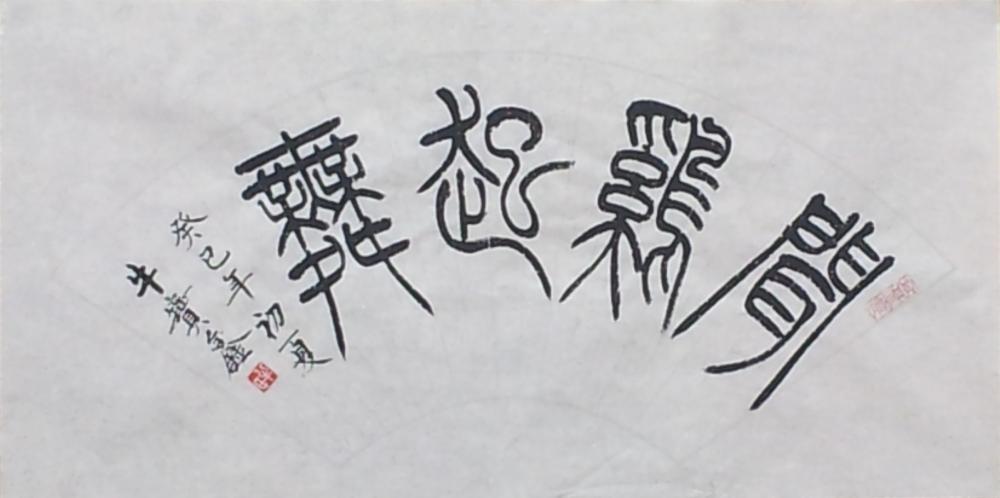 聞鷄起舞
癸巳年初夏
牛